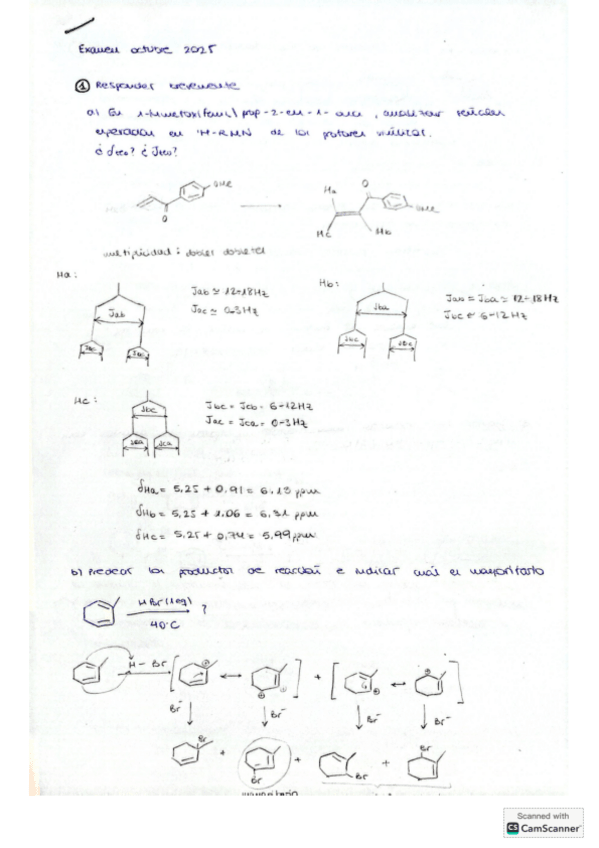 Examen octubre 2025
① Responder brevemente
a) En 1-(4-metoxifenil)prop-2-en-1-ona, analizar señales
esperadas en ¹H-RMN de los protones vinílicos.
¿δteo? ¿Jteo?
OMe
O
Ha
O
OMe
Hc
Hb
multiplicidad: dobles dobletes
Ha:
Jab ≃ 12-18Hz
Jac ≃ 0-3Hz
Jab
Jac
Jac
Hb:
Jab = Jba ≃ 12-18Hz
Jbc ≃ 6-12Hz
Jba
Jbc
Jbc
Hc:
Jbc = Jcb = 6-12Hz
Jac = Jca = 0-3Hz
Jbc
Jca
δHa = 5,25 + 0,91 = 6,13 ppm
δHb = 5,25 + 1,06 = 6,31 ppm
δHc = 5,25 + 0,74 = 5,99 ppm
b) Predecir los productos de reacción e indicar cuál es mayoritario
HBr (1eq)
40°C
?
H-Br
+
Br⁻
Br⁻
Br⁻
Br⁻
Br
+
Br
+
Br
+
Br
mayoritario
Scanned with
CS CamScanner